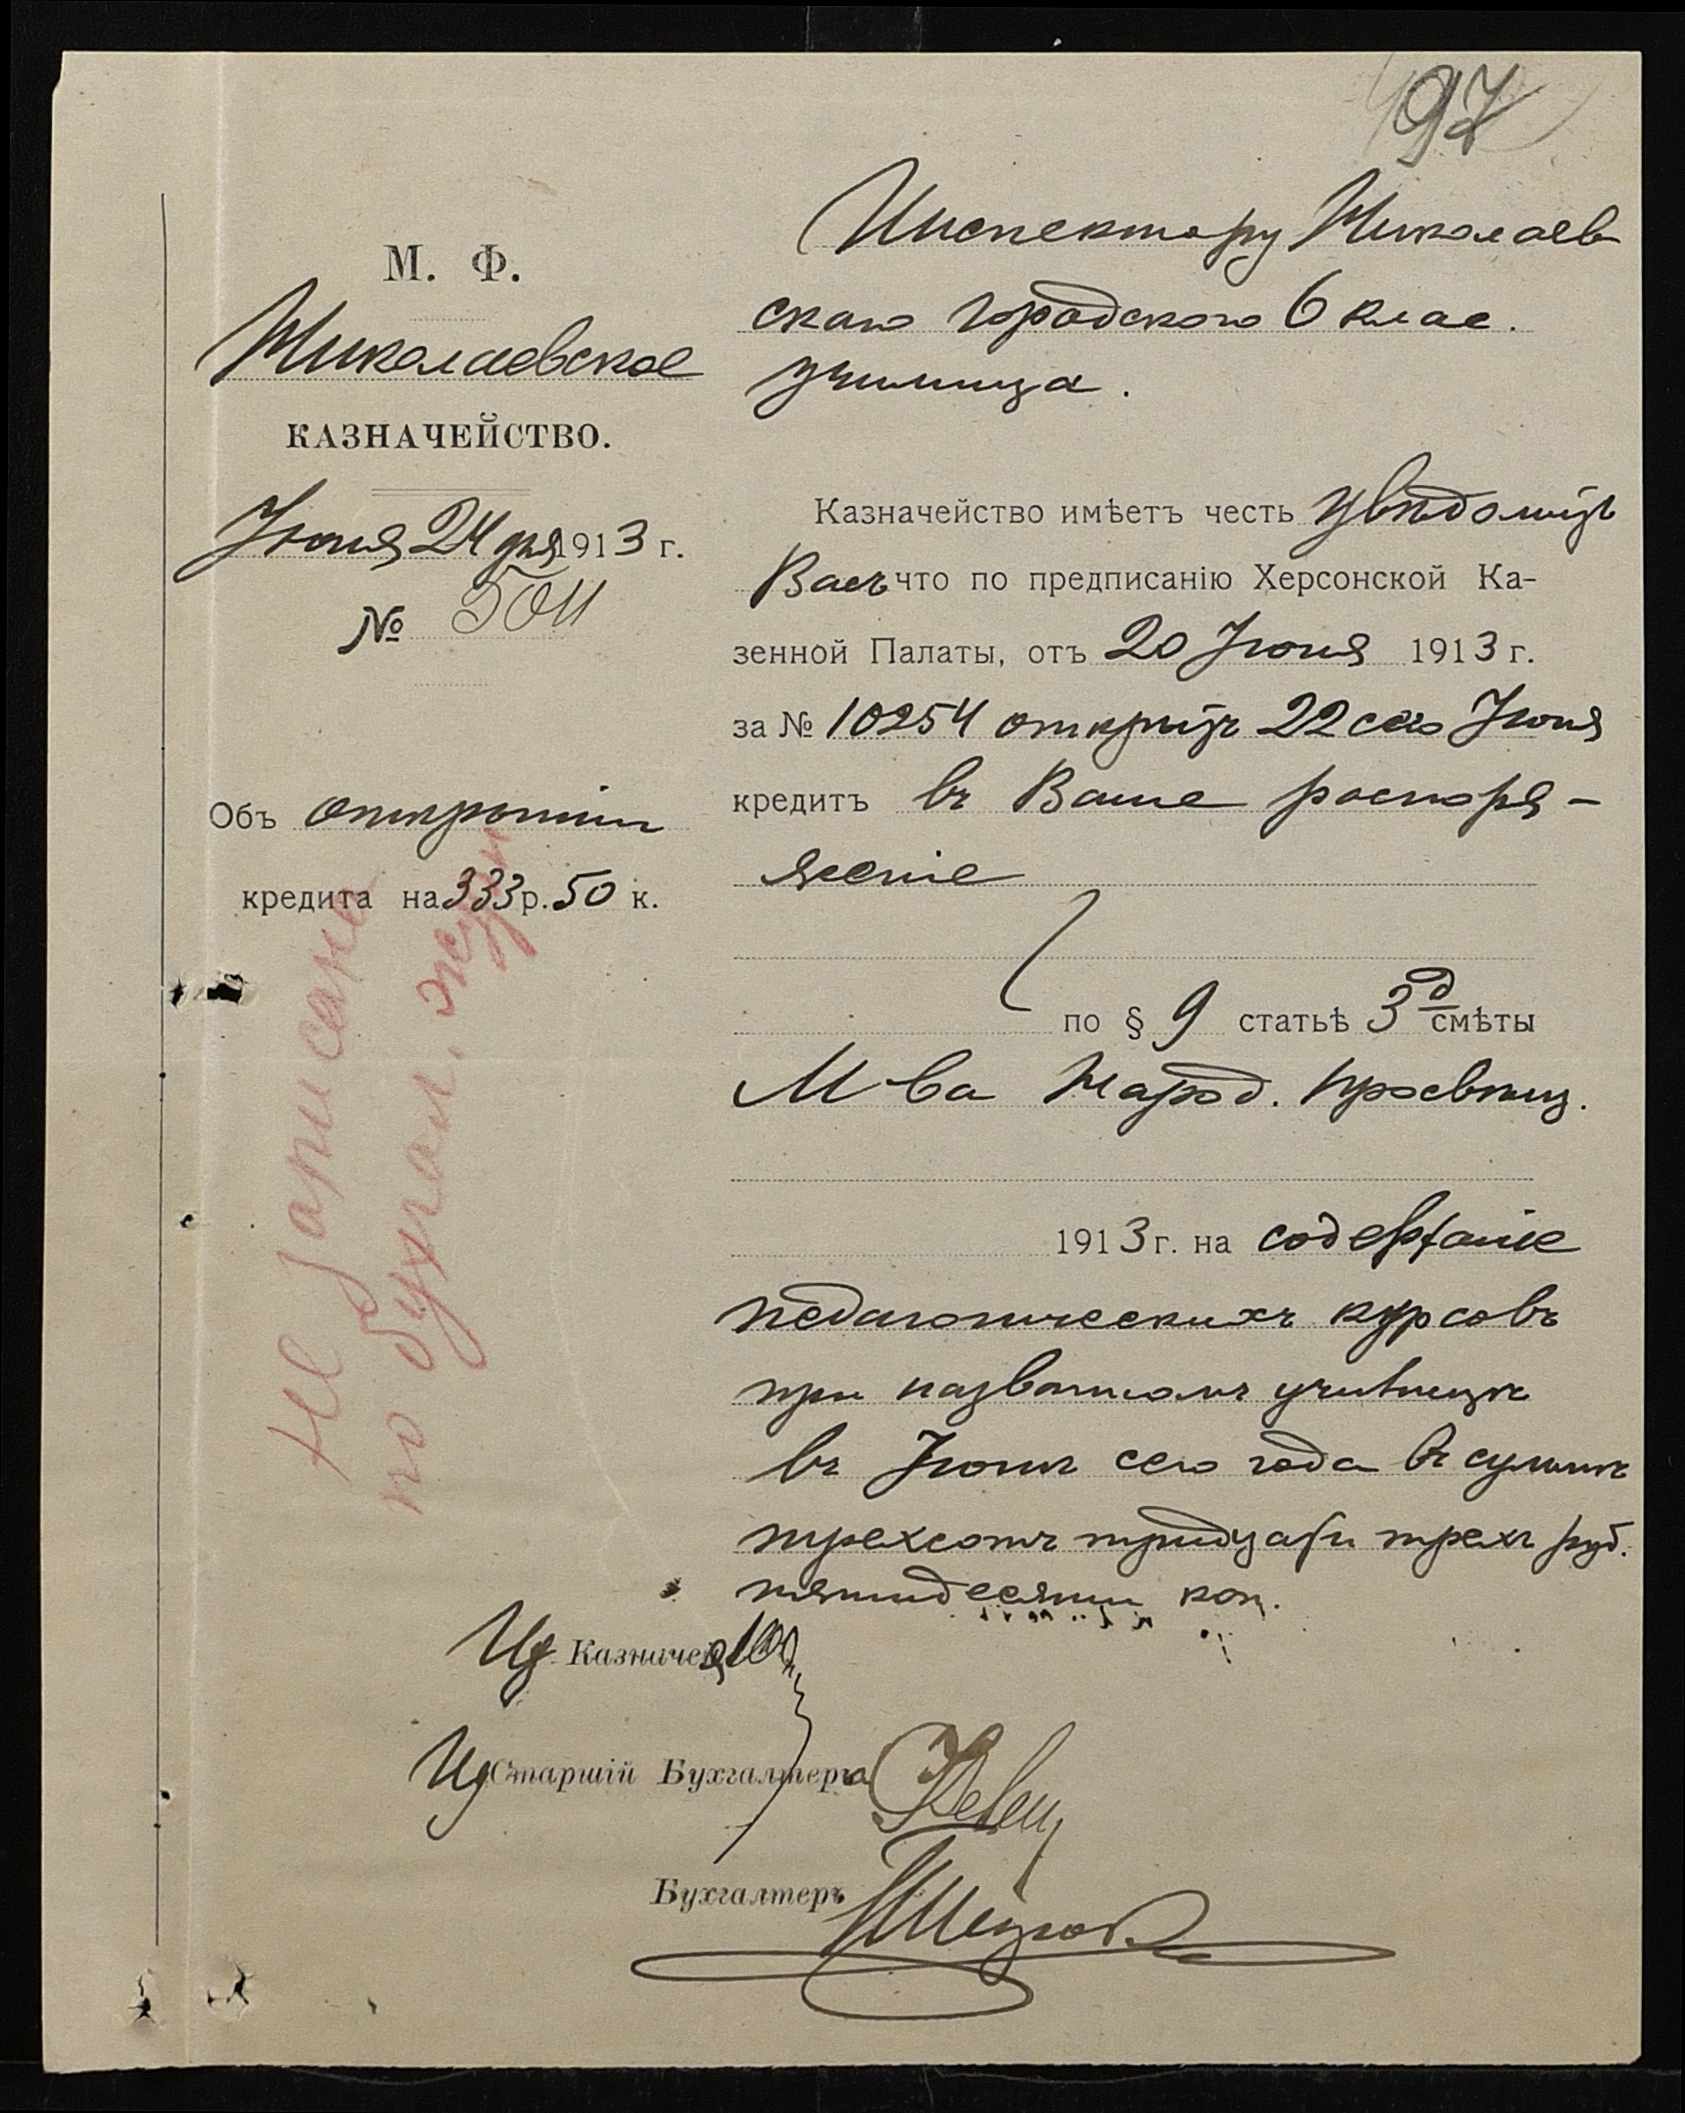 97
М. Ф.
Николаевское
КАЗНАЧЕЙСТВО.
Июня 24 дня 1913 г.
№ 5011
Объ открытіи
кредита на 333 р. 50 к.
Не записано
по бухгал. жур
Инспектору Николаев
скаго городского 6 клас.
училища.
Казначейство имѣетъ честь увѣдомить
Васъ что по предписанію Херсонской Ка-
зенной Палаты, отъ 20 Июня 1913 г.
за № 10254 открытъ 22 сего Июня
кредитъ въ Ваше распоря-
женіе
по § 9 статьѣ 3 д смѣты
М-ва Народ. Просвѣщ.
1913 г. на содержаніе
педагогическихъ курсовъ
при названномъ училищѣ
въ Июнѣ сего года въ суммѣ
трехсотъ тридцати трехъ руб.
пятидесяти коп.
Ид Казначея
Ид Старшій Бухгалтера
Бухгалтеръ